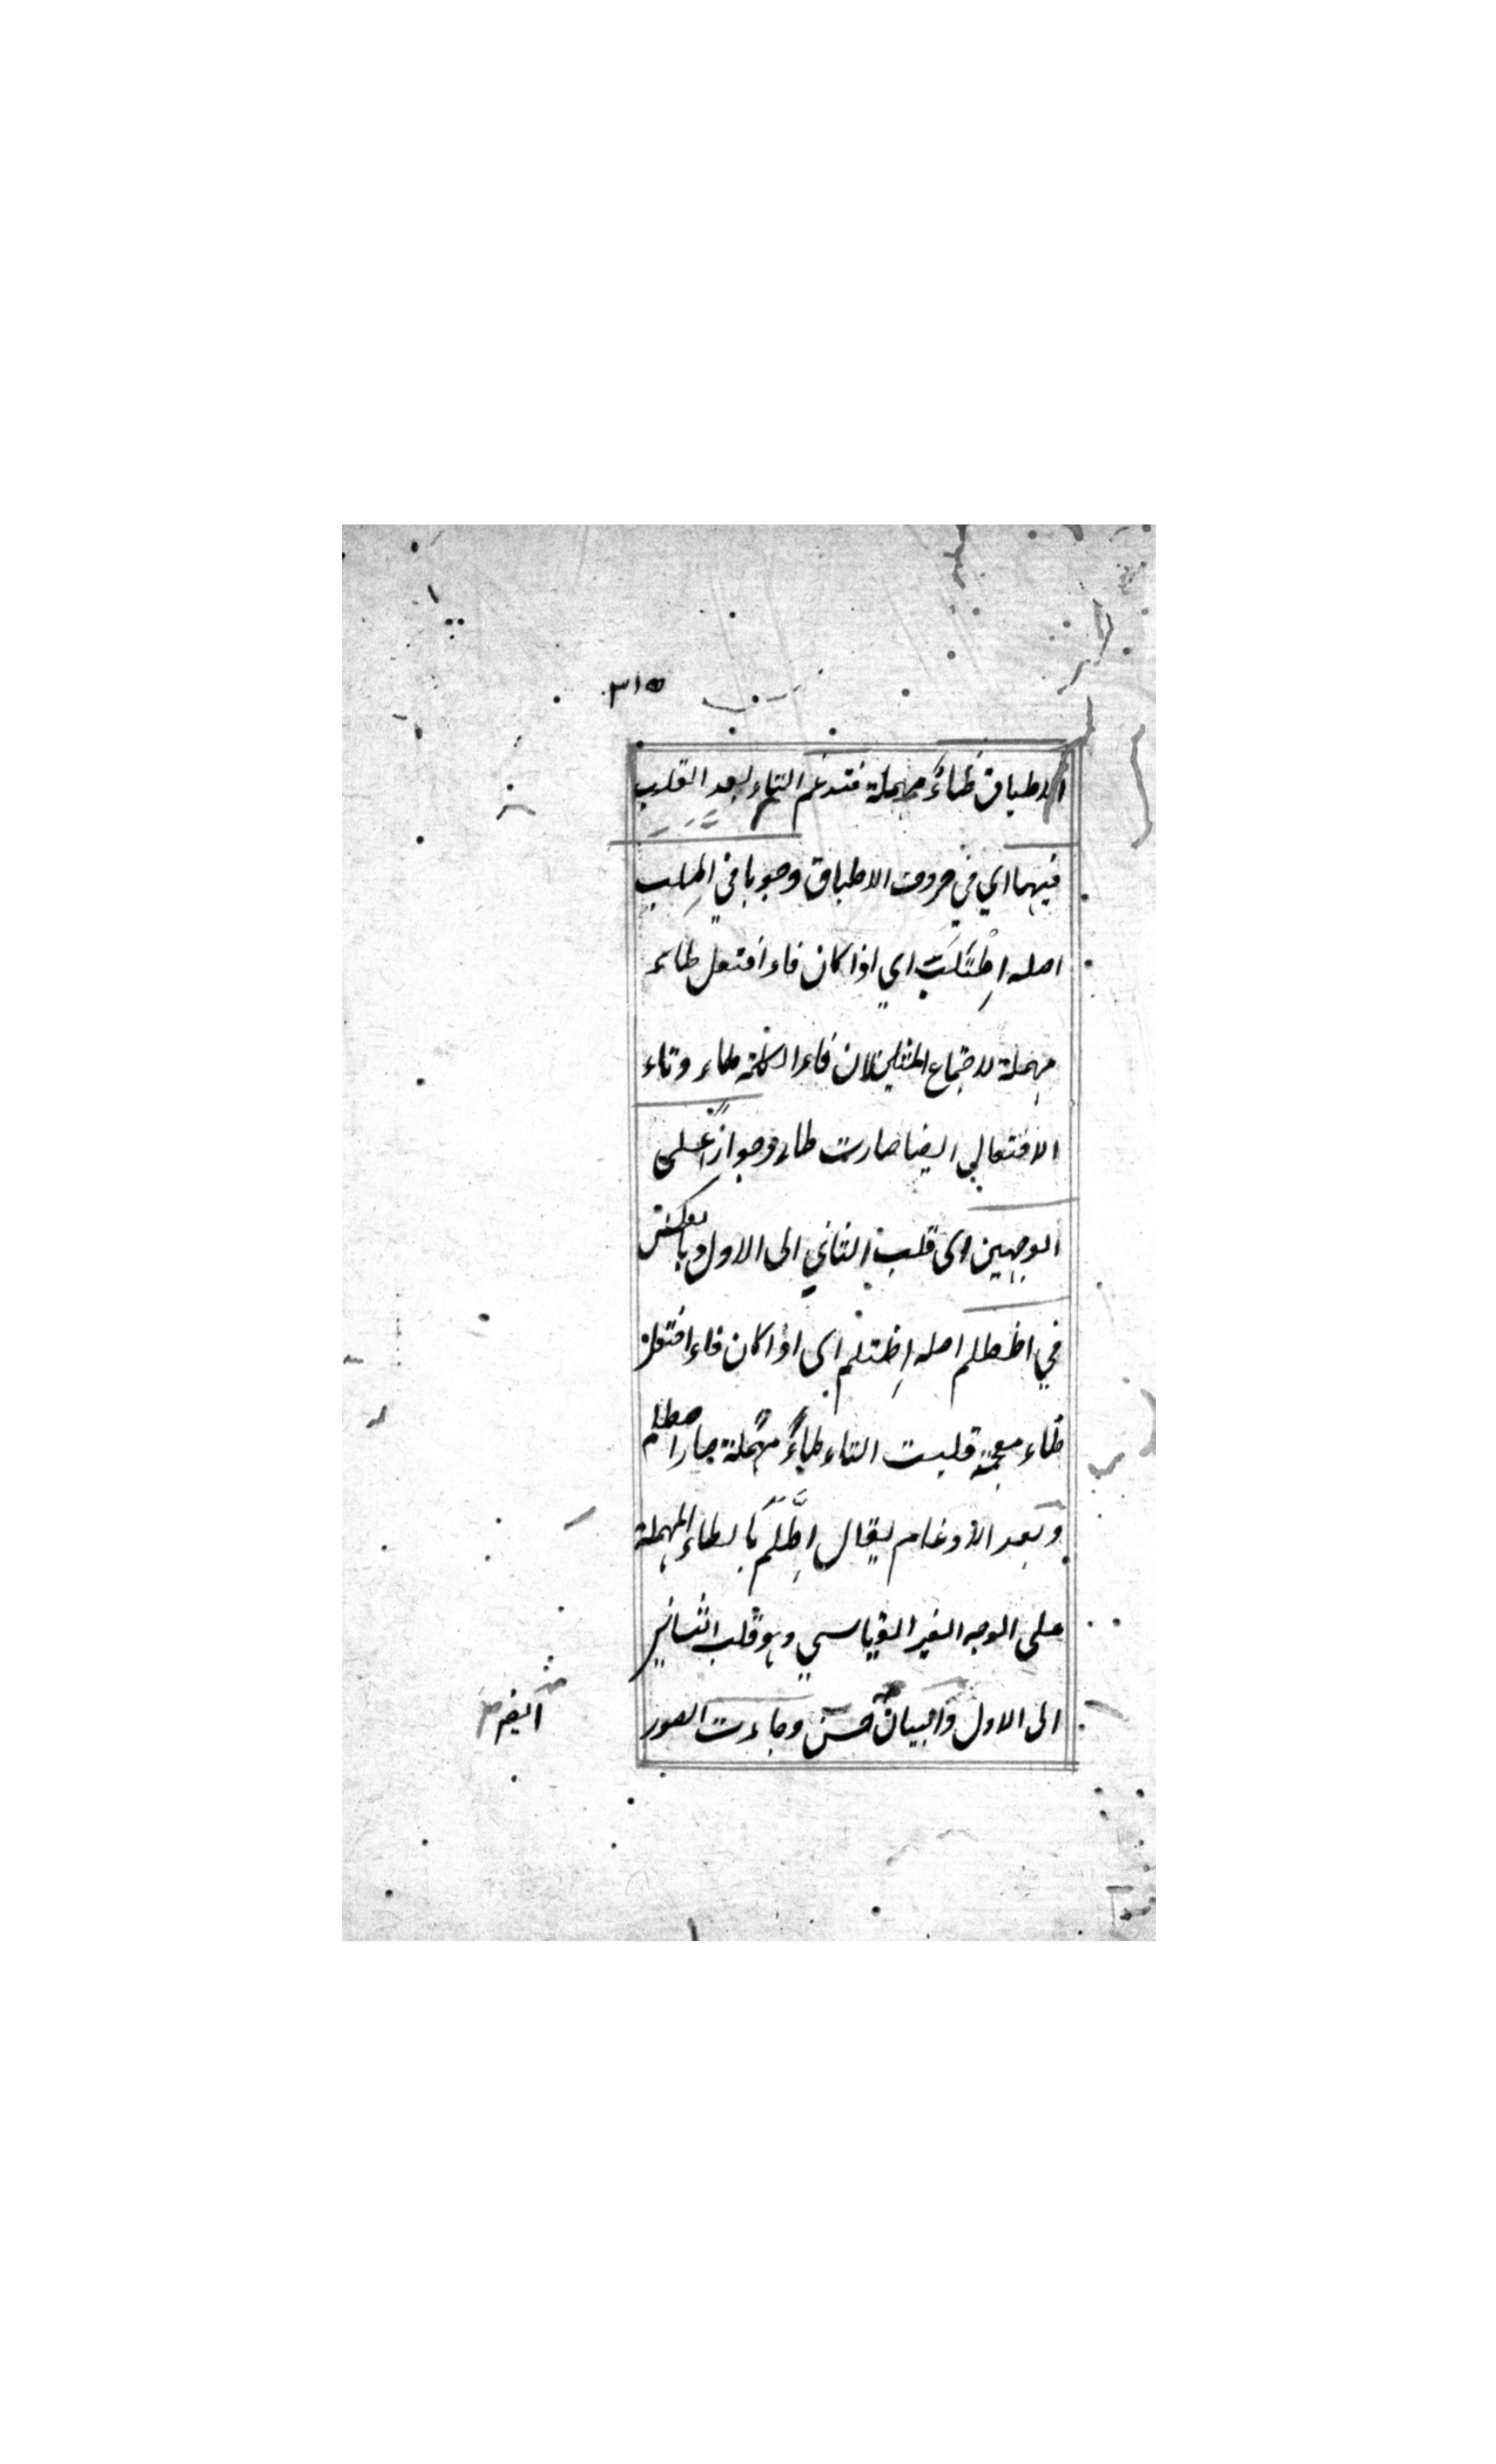 ٣١٥
الاطباق طاءً مهملة فتدغم التاء بعد القلب
فيها اي في حروف الاطباق وجوبا في اطلب
اصله اِطْتَلَبَ اي اذا كان فاء افتعل طاء
مهملة لاجتماع المثلين لان فاء الكلمة طاء وتاء
الافتعال ايضا صارت طاء وجوازًا على
الوجهين اى قلب الثاني الى الاول وبالعكس
في اظطلم اصله اِظتلم اى اذا كان فاء افتعل
ظاء معجمة قلبت التاء طاءً مهملة صار اظطلم
وبعد الادغام يقال اِطَّلَمَ بالطاء المهملة
على الوجه الغير القياسي وهو قلب الثاني
الى الاول والبيان حسن وجاءت الصور